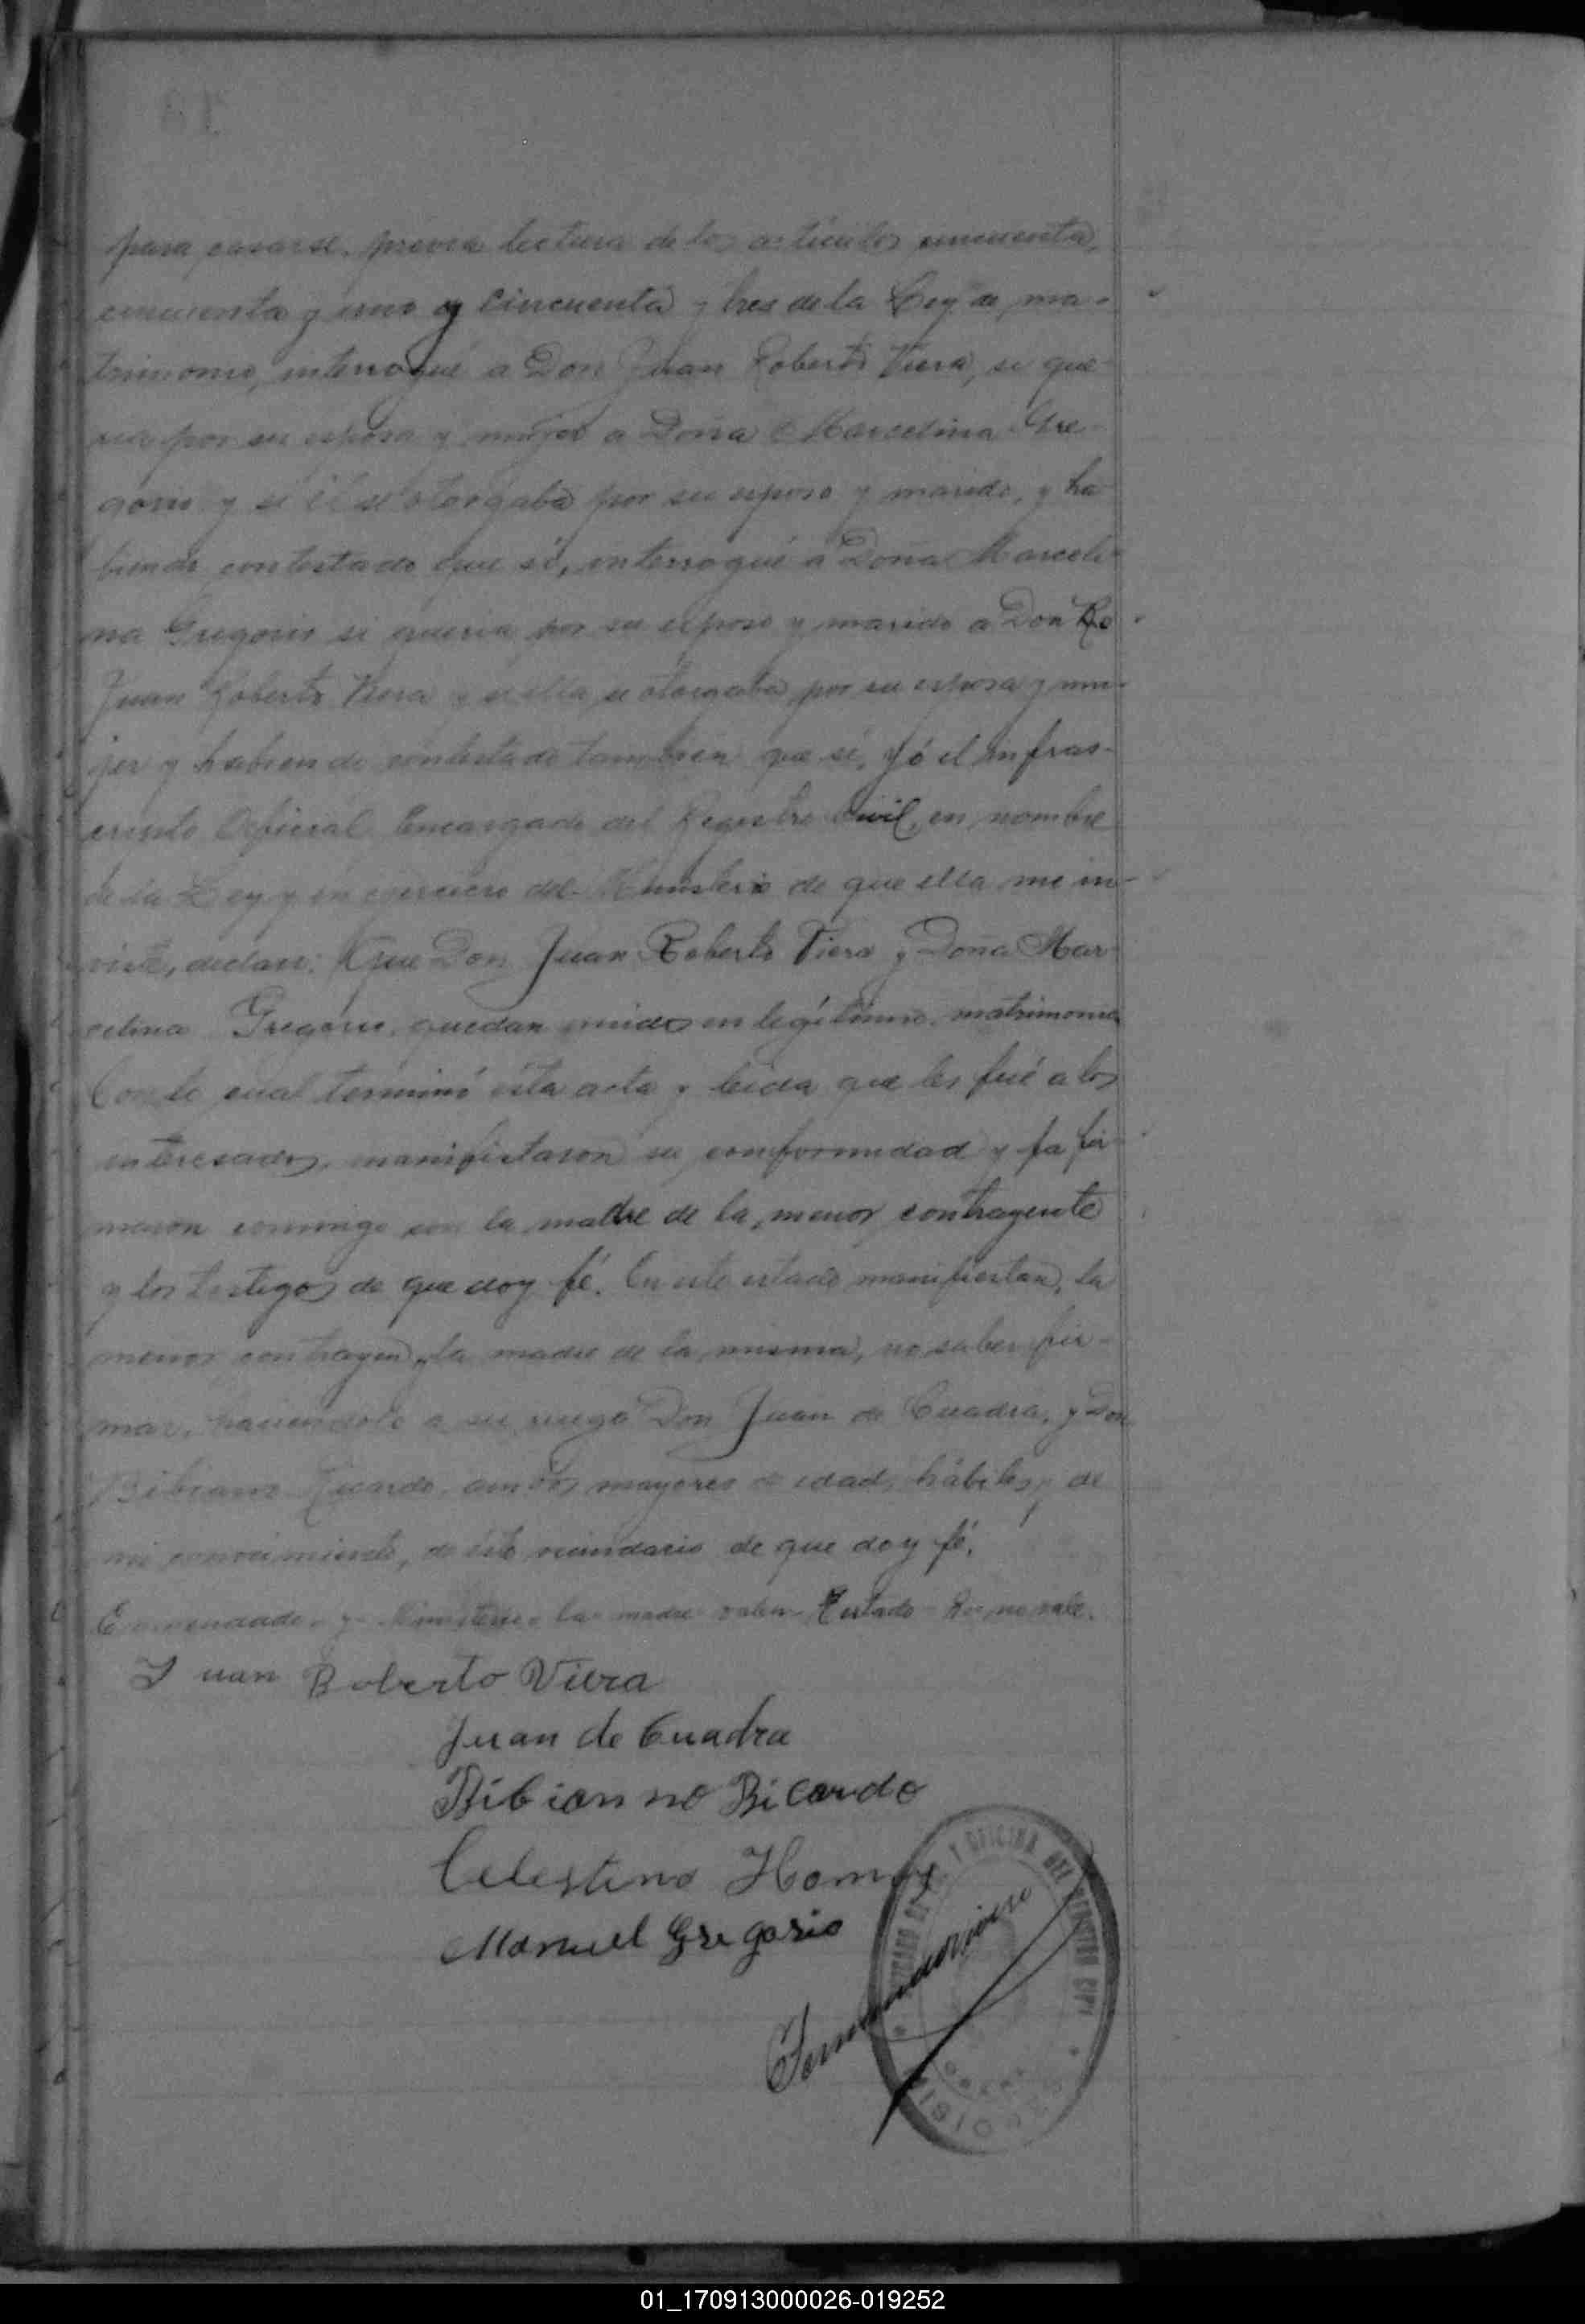 para casarse, previa lectura de los articulos cincuenta,
cincuenta y uno y cincuenta y tres de la Ley de ma-
trimonio, interrogué a Don Juan Roberto Viera, si que-
ria por su esposa y mujer a Doña Marcelina Gre-
gorio y si él se otorgaba por su esposo y marido, y ha-
biendo contestado que sí, interrogué a Doña Marceli-
na Gregorio si queria por su esposo y marido a Don Ro
Juan Roberto Viera y si ella se otorgaba por su esposa y mu-
jer y habiendo contestado tambien que sí, Yó el infras-
crito Oficial Encargado del Registro Civil, en nombre
de la Ley y en ejercicio del Ministerio de que ella me in-
viste, declaro: Que Don Juan Roberto Viera y Doña Mar-
celina Gregorio, quedan unidos en legítimo matrimonio
Con lo cual terminó esta acta y leida que les fué a los
interesados, manifestaron su conformidad y la fir-
maron conmigo con la madre de la menor contrayente
y los testigos de que doy fé. En este estado manifiestan, la
menor contrayen y la madre de la misma, no saber fir-
mar, haciendolo a su ruego Don Juan de Cuadra, y Don
Bibiano Ricardo, ambos mayores de edad, hábiles, de
mi conocimiento, de este vecindario de que doy fé.
Enmendado - y - Ministerio - la madre valen - Testado - Ro, no vale.
Juan Roberto Viera
Juan de Cuadra
Bibianno Ricardo
Celestino
Manuel Gregorio
Y OFICINA DEL REGISTRO CIVIL